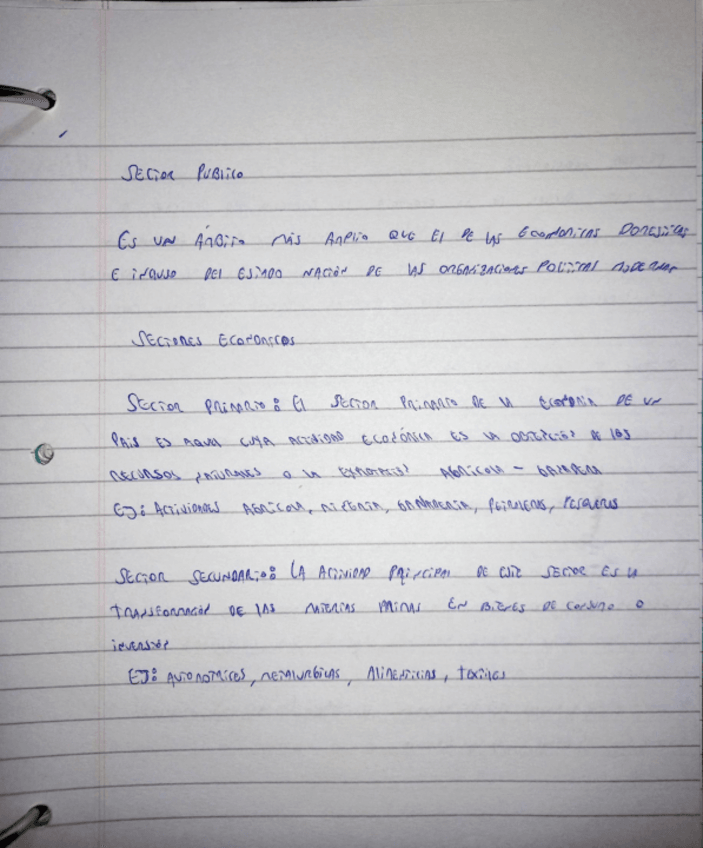 SECTOR PUBLICO
ES UN ÁMBITO MÁS AMPLIO QUE EL DE LAS ECONOMICAS DOMESTICAS
E INCLUSO DEL ESTADO NACIÓN DE LAS ORGANIZACIONES POLITICAS MODERNAS
SECTORES ECONOMICOS
SECTOR PRIMARIO: EL SECTOR PRIMARIO DE LA ECONOMIA DE UN
PAIS ES AQUEA CUYA ACTIVIDAD ECONÓMICA ES LA OBTENCIÓN DE LOS
RECURSOS NATURALES O LA AGRICOLA - GANADERA
EJ: ACTIVIDADES AGRICOLA, MINERIA, GANADERIA, PETROLERAS, PESQUERAS
SECTOR SECUNDARIO: LA ACTIVIDAD PRINCIPAL DE ESTE SECTOR ES LA
TRANSFORMACIÓN DE LAS MATERIAS PRIMAS EN BIENES DE CONSUMO O
INVERSIÓN
EJ: METALURGICAS, ALIMENTICIAS, TEXTILES